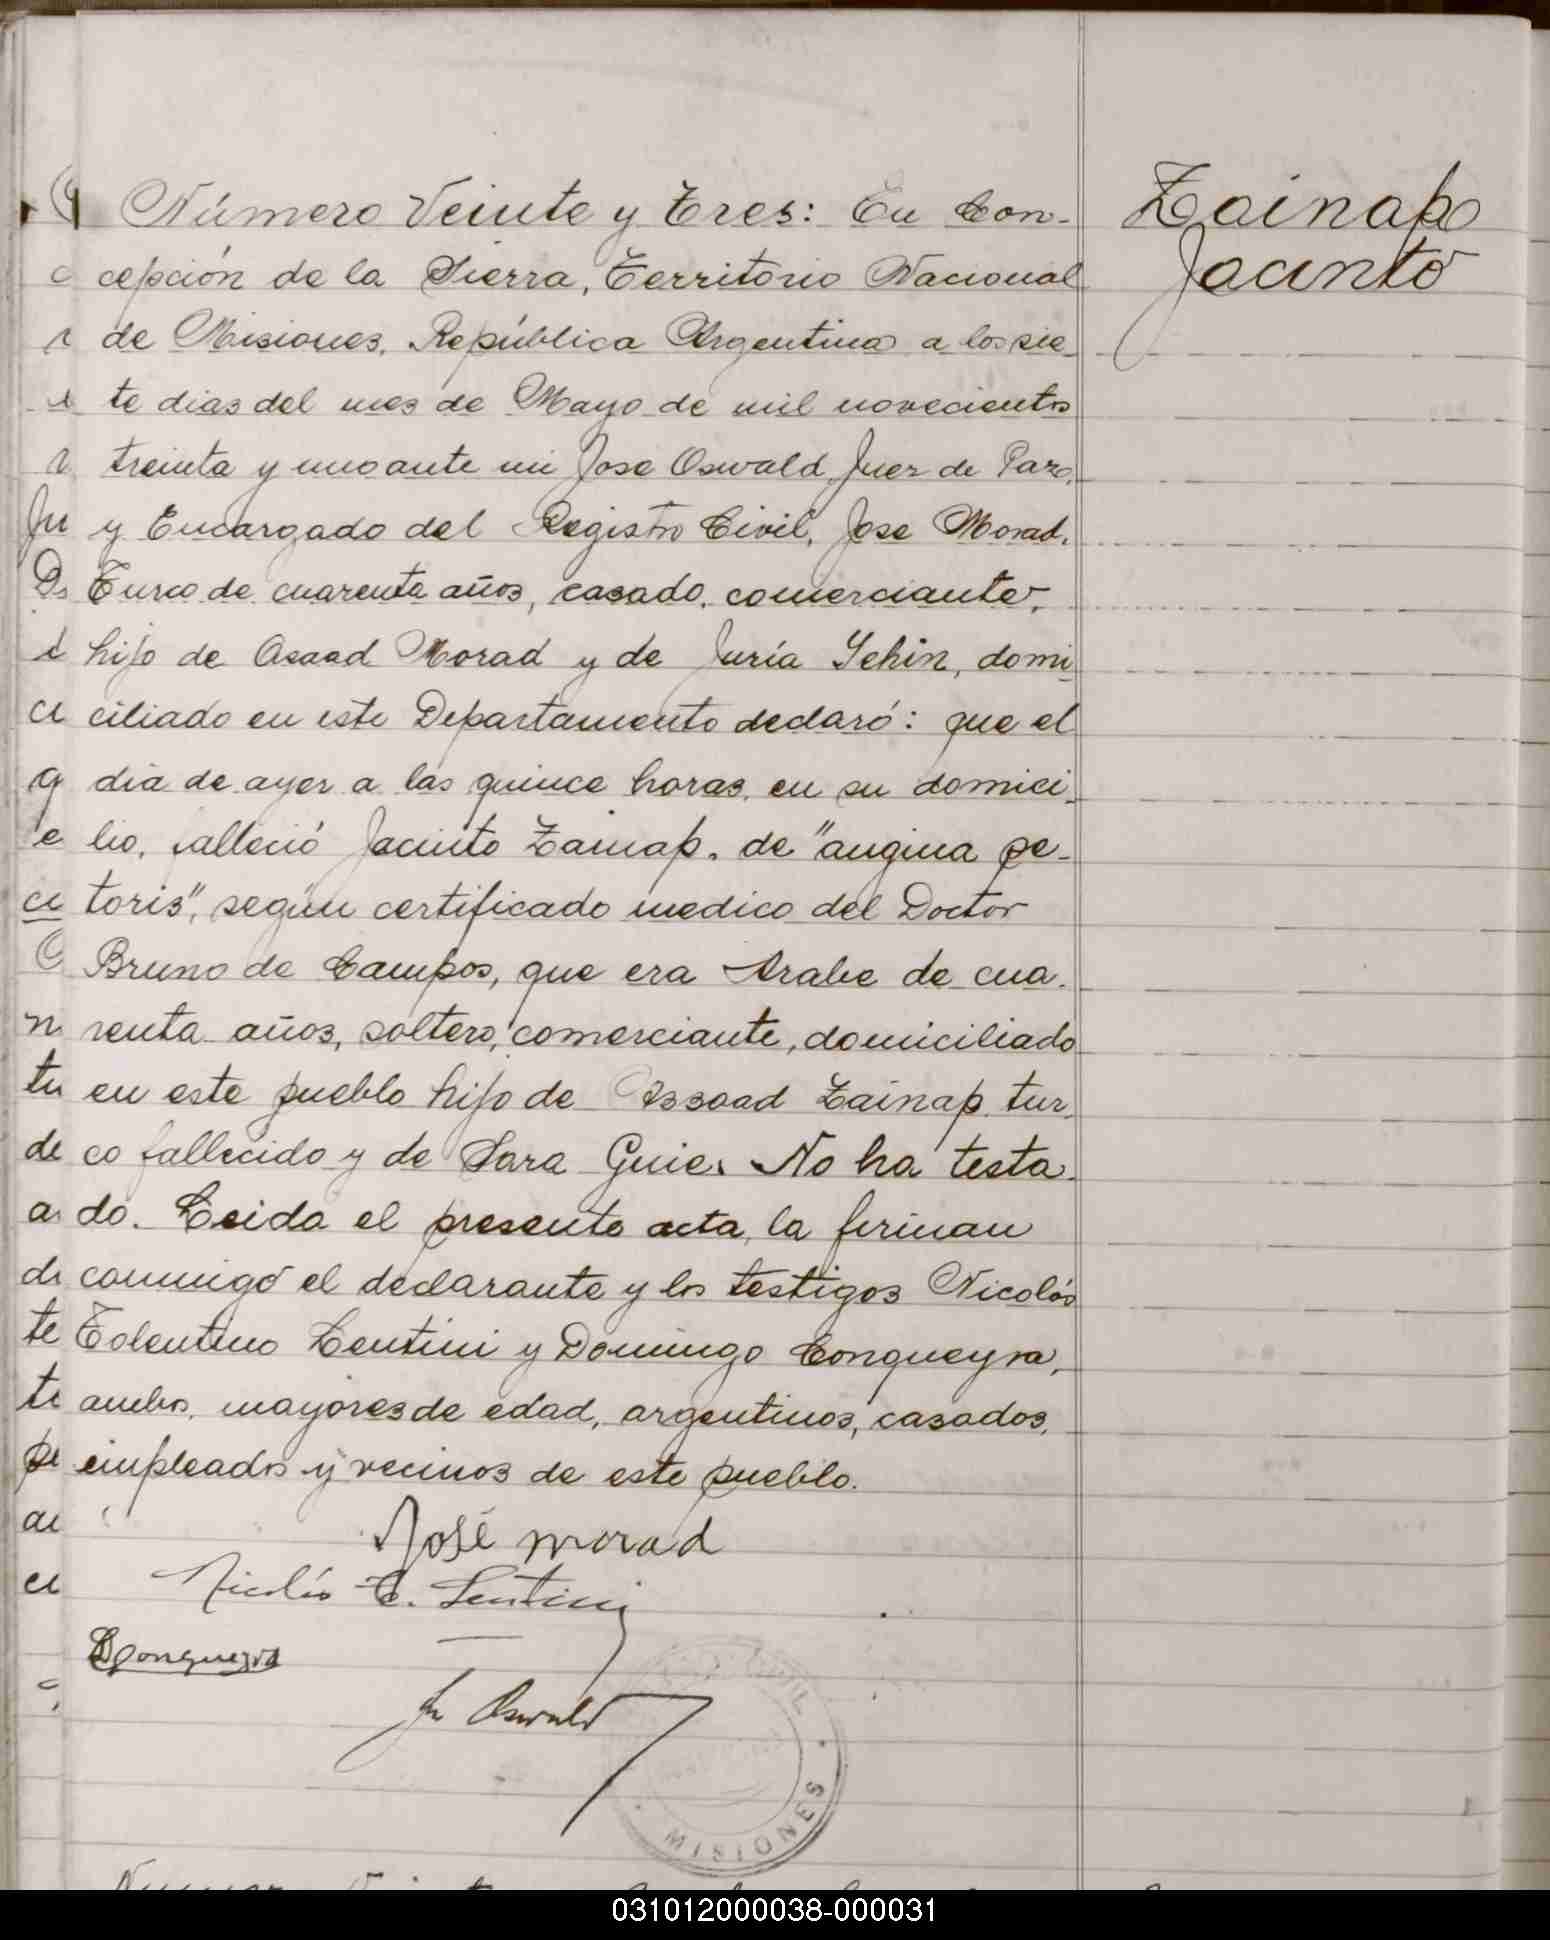 Número Veinte y Tres: En Con-
cepción de la Sierra, Territorio Nacional
de Misiones, República Argentina a los sie-
te dias del mes de Mayo de mil novecientos
treinta y uno ante mi Jose Oswald Juez de Paz,
y Encargado del Registro Civil, Jose Morad,
Turco de cuarenta años, casado, comerciante,
hijo de Asaad Morad y de Juría Sehin, domi-
ciliado en este Departamento declaró: que el
dia de ayer a las quince horas, en su domici-
lio, falleció Jacinto Zainap, de "angina pe-
toris", según certificado medico del Doctor
Bruno de Campos, que era Arabe de cua-
renta años, soltero, comerciante, domiciliado
en este pueblo hijo de Assaad Zainap, tur-
co fallecido y de Sara Guie. No ha testa-
do. Leida el presente acta, la firman
conmigo el declarante y los testigos Nicolás
Tolentino Lentini y Domingo Conqueyra,
ambos, mayores de edad, argentinos, casados,
empleados y vecinos de este pueblo.
José morad
Nicolás T. Lentini
DConqueyra
Oswald
MISIONES
Zainap
Jacinto
031012000038-000031